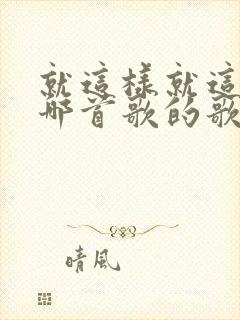 就這樣就這
哪首歌的歌
晴風